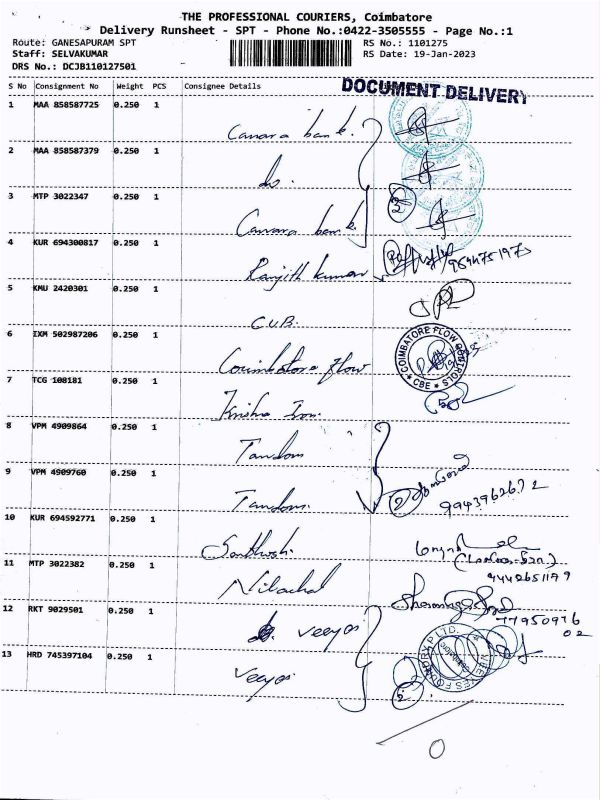 THE PROFESSIONAL COURIERS, Coimbatore
Delivery Runsheet - SPT - Phone No.:0422-3505555 - Page No.:1
Route: GANESAPURAM SPT RS No.: 1101275
Staff: SELVAKUMAR RS Date: 19-Jan-2023
DRS No.: DCJB110127501
DOCUMENT DELIVERY
S No Consignment No Weight PCS Consignee Details
1 MAA 858587725 0.250 1
Canara bank.
2 MAA 858587379 0.250 1
do.
3 MTP 3022347 0.250 1
3
Canara bank.
4 KUR 694300817 0.250 1
Ranjith kumar
5 KMU 2420301 0.250 1
C.U.B.
6 IXM 502987206 0.250 1
COIMBATORE FLOW CONTROLS
CBE
Coimbatore Flow
7 TCG 108181 0.250 1
Krisha Iron.
8 VPM 4909864 0.250 1
Tandom
9 VPM 4909760 0.250 1
Tandom. 2 9943962672
10 KUR 694592771 0.250 1
Santhosh.
11 MTP 3022382 0.250 1
9442651179
Nilachal
12 RKT 9029501 0.250 1
77950976
02
veeyes
13 HRD 745397104 0.250 1
veeyes
2